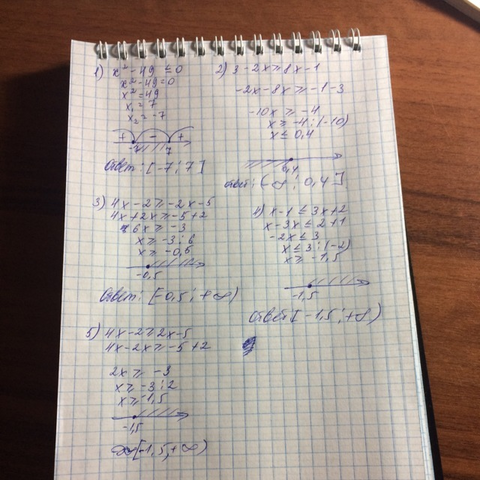 1) x² - 49 ≤ 0
x² - 49 = 0
x² = 49
x₁ = 7
x₂ = -7
+ - +
-7 7
Ответ: [-7; 7]
2) 3 - 2x ≥ 8x - 1
-2x - 8x ≥ -1 - 3
-10x ≥ -4
x ≥ -4 : (-10)
x ≤ 0,4
0,4
Ответ: (∞; 0,4]
3) 4x - 2 ≥ -2x - 5
4x + 2x ≥ -5 + 2
6x ≥ -3
x ≥ -3 : 6
x ≥ -0,5
-0,5
Ответ: [-0,5; +∞)
4) x - 1 ≤ 3x + 2
x - 3x ≤ 2 + 1
-2x ≤ 3
x ≤ 3 : (-2)
x ≥ -1,5
-1,5
Ответ [-1,5; +∞)
5) 4x - 2 ≥ 2x - 5
4x - 2x ≥ -5 + 2
2x ≥ -3
x ≥ -3 : 2
x ≥ -1,5
-1,5
[-1,5; +∞)